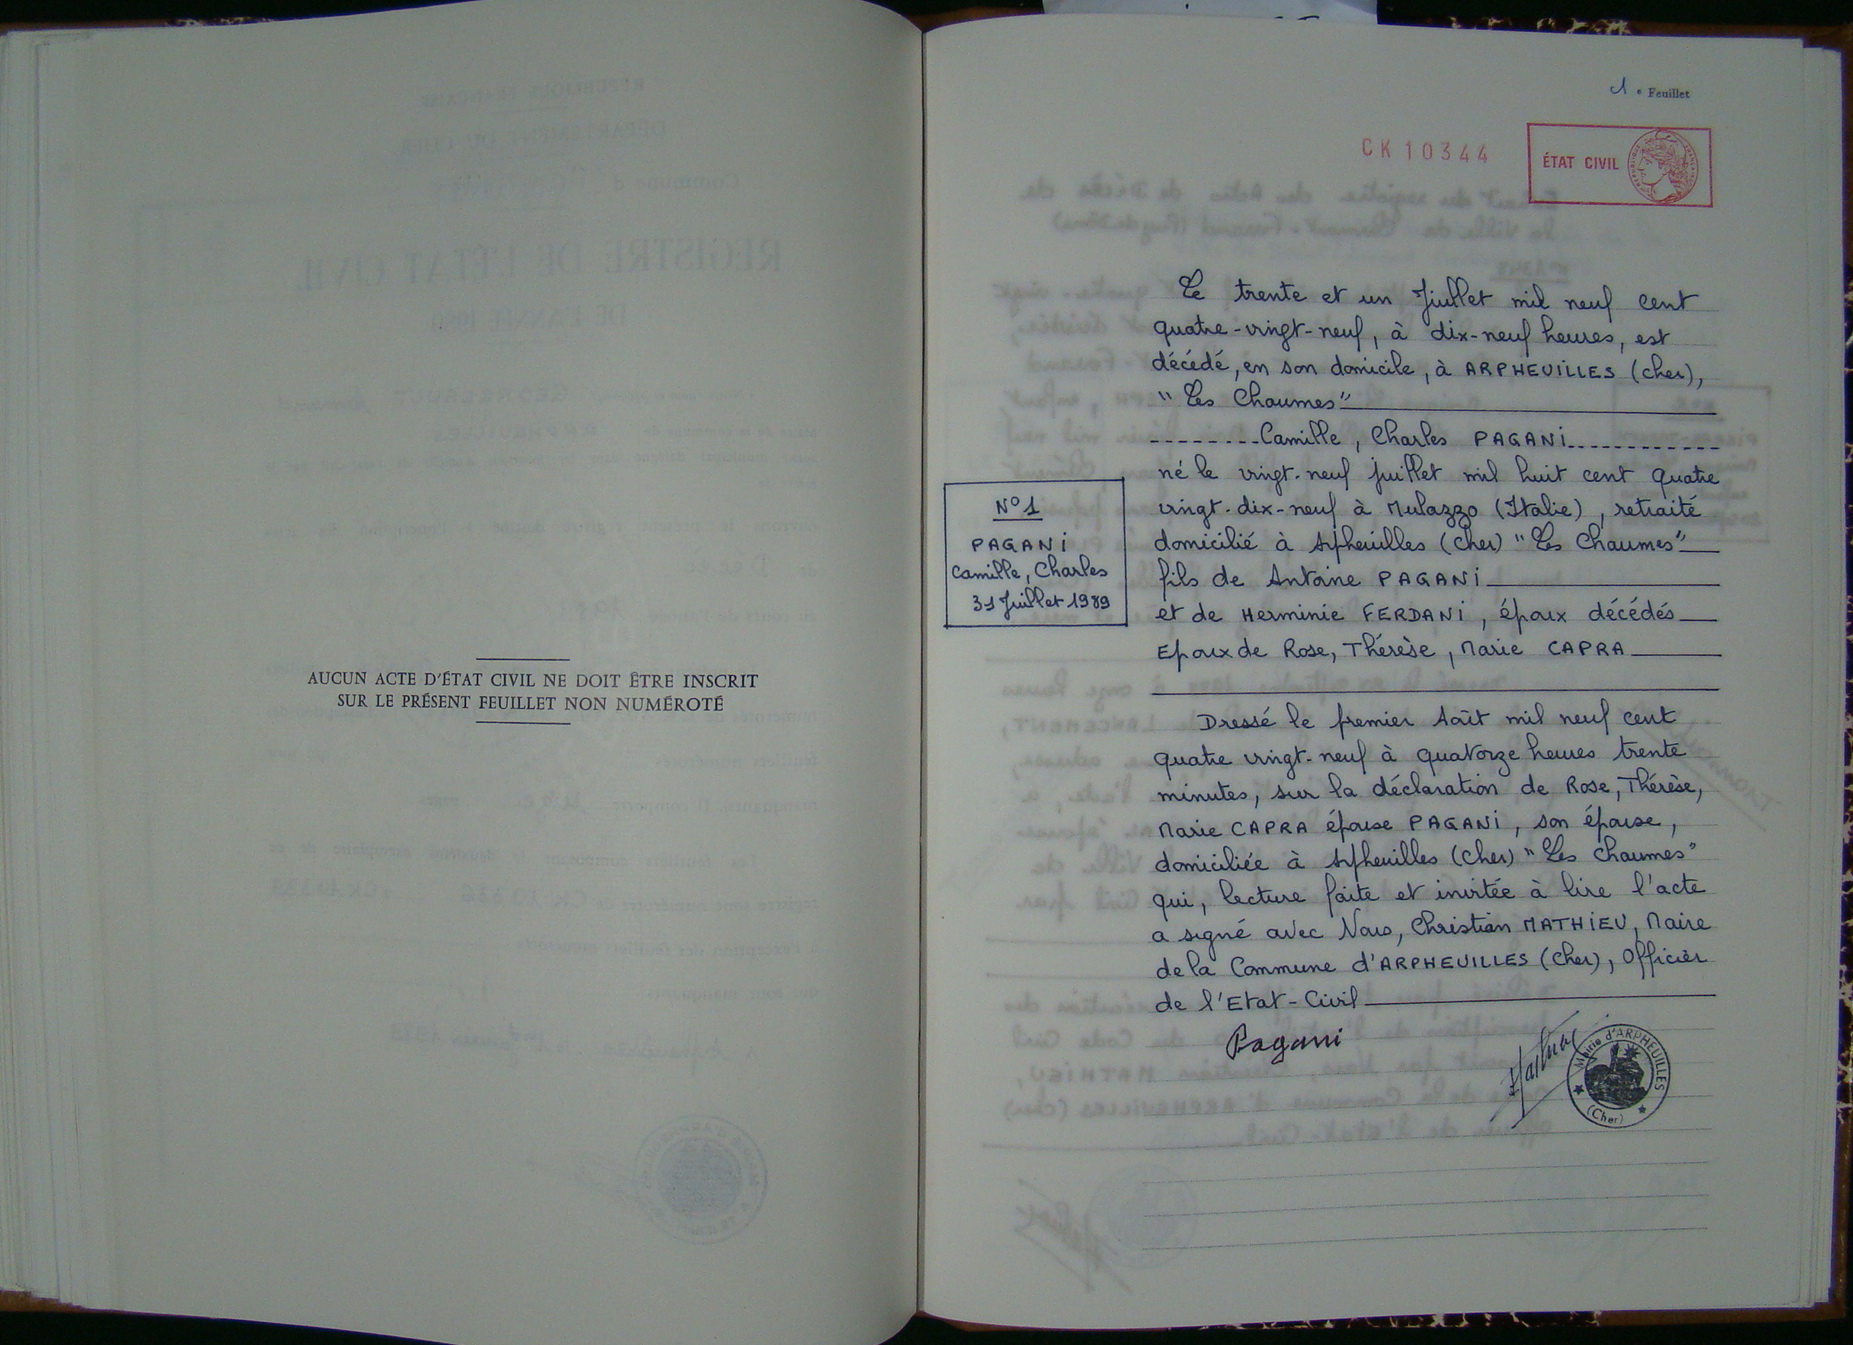 AUCUN ACTE D'ÉTAT CIVIL NE DOIT ÊTRE INSCRIT
SUR LE PRÉSENT FEUILLET NON NUMÉROTÉ
1 e Feuillet
CK 10344
ÉTAT CIVIL
Le trente et un Juillet mil neuf cent
quatre-vingt-neuf, à dix-neuf heures, est
décédé, en son domicile, à ARPHEUILLES (Cher),
"Les Chaumes"
Camille, Charles PAGANI
né le vingt-neuf juillet mil huit cent quatre
vingt-dix-neuf à Mulazzo (Italie), retraité
domicilié à Arpheuilles (Cher) "Les Chaumes"
fils de Antoine PAGANI
et de Herminie FERDANI, époux décédés
Epoux de Rose, Thérèse, Marie CAPRA
N°1
PAGANI
Camille, Charles
31 Juillet 1989
Dressé le premier Août mil neuf cent
quatre vingt-neuf à quatorze heures trente
minutes, sur la déclaration de Rose, Thérèse,
Marie CAPRA épouse PAGANI, son épouse,
domiciliée à Arpheuilles (Cher) "Les Chaumes"
qui, lecture faite et invitée à lire l'acte
a signé avec Nous, Christian MATHIEU, Maire
de la Commune d'ARPHEUILLES (Cher), Officier
de l'Etat-Civil
Pagani
Mairie d'ARPHEUILLES
(Cher)